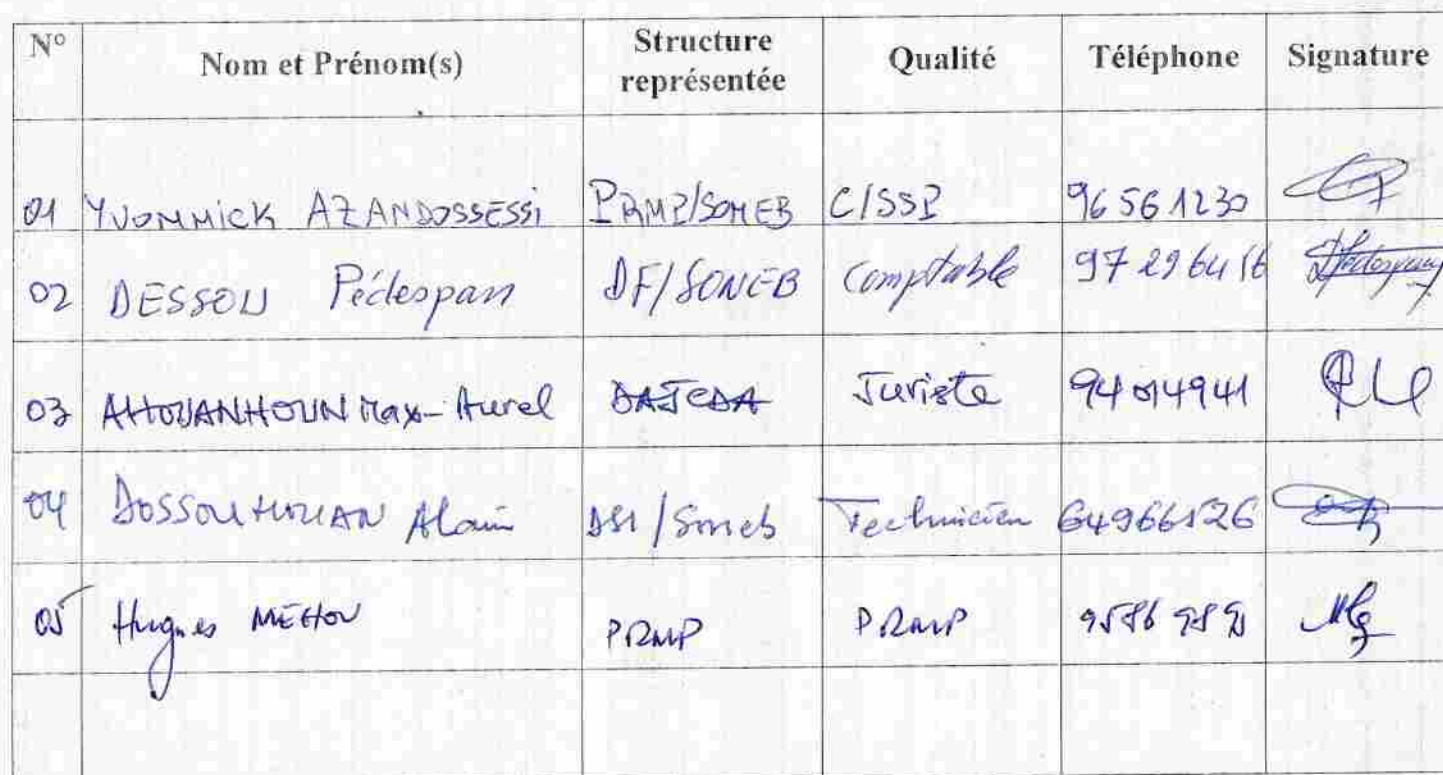 N° Nom et Prénom(s) Structure représentée Qualité Téléphone Signature
01 YVONNICK AZANDOSSESSI PRMP/SONEB C/SSP 96561230
02 DESSOU Pédespan DF/SONEB Comptable 97296416
03 AHOUANHOUN Max-Aurel DAJCDA Juriste 94014941
04 DOSSOUHOUAN Alain DSI/Soneb Technicien 64966526
05 Hugues MEHOU PRMP PRMP